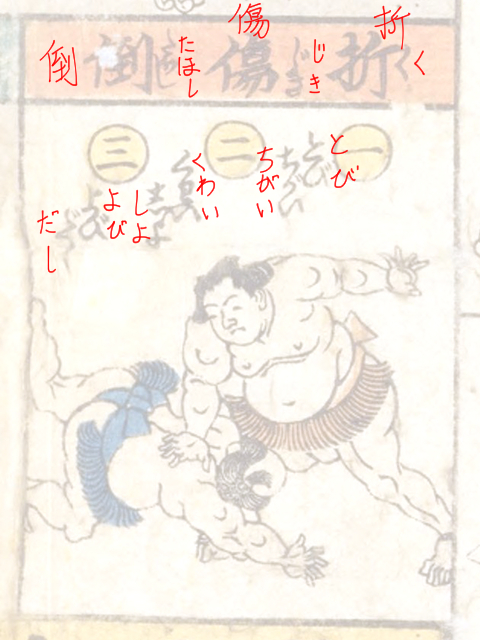 折く
じき
傷
たほし
倒
折傷倒
一
二
三
とび
ちがい
くわい
しよ
よび
だし